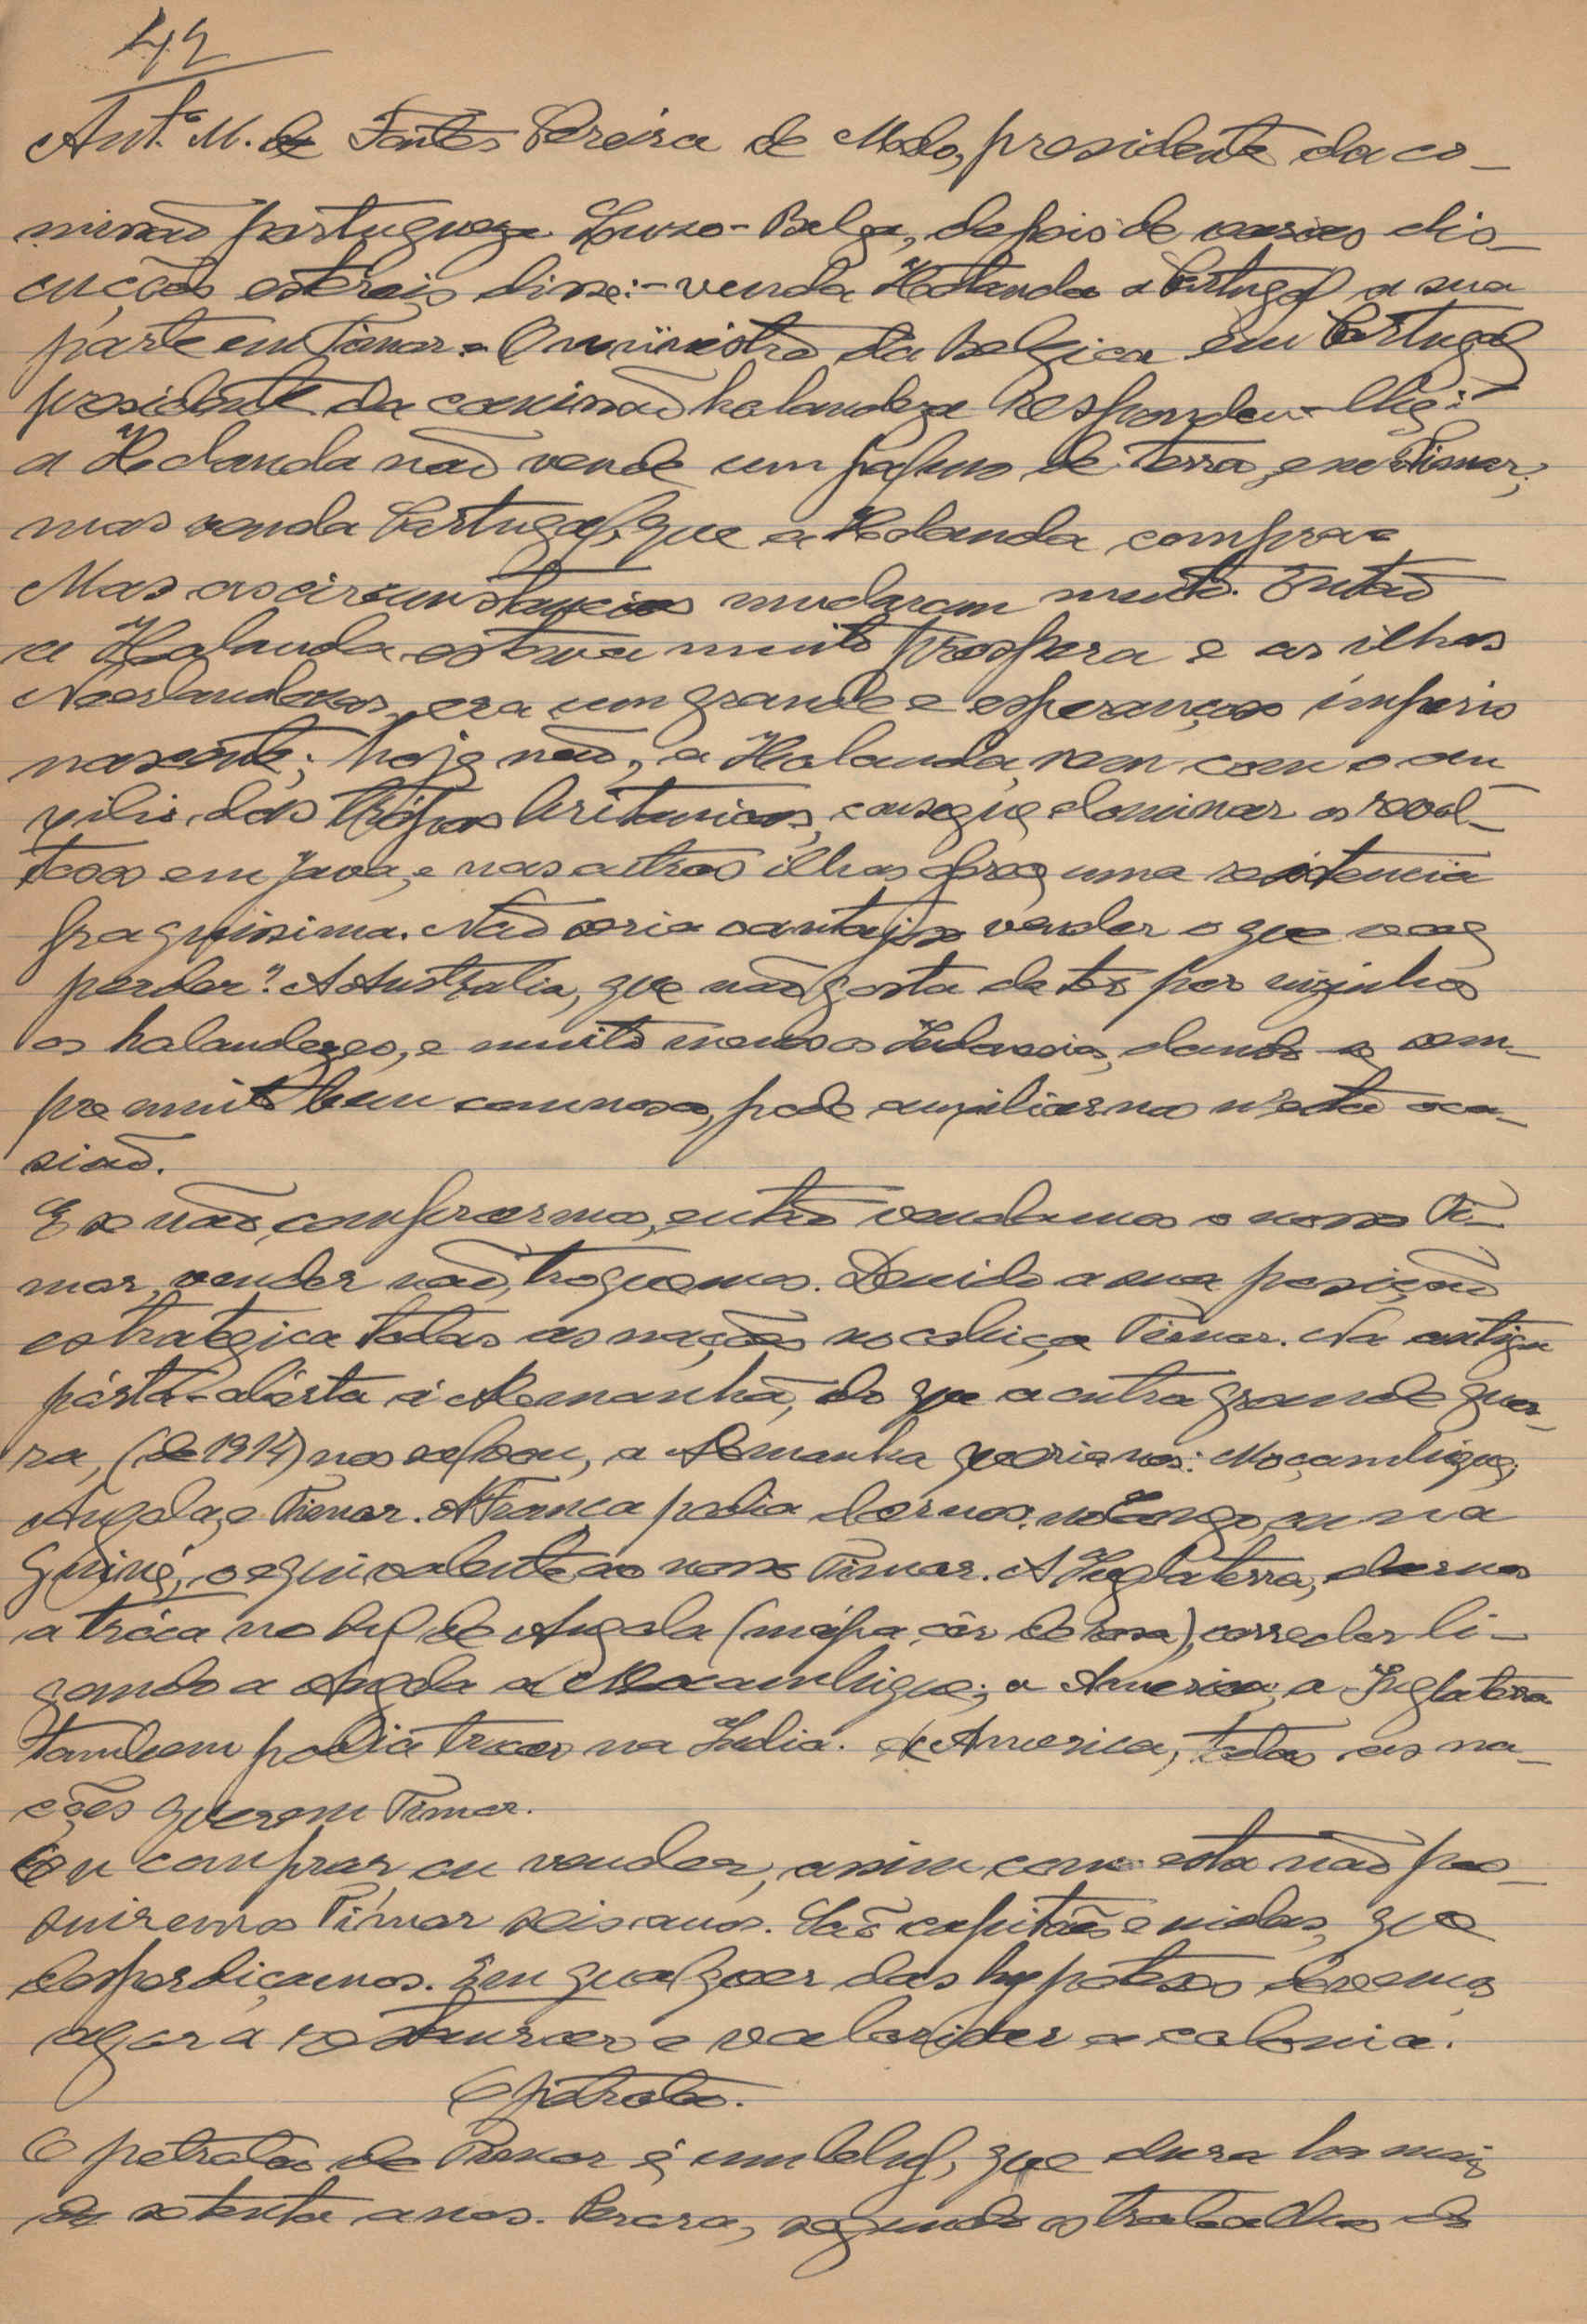 42
Ant.º M. de Fontes Pereira de Melo, presidente da co-
missão portugueza Luzo-Belga, depois de varias dis-
cuções estereis disse:- venda Holanda a Portugal a sua
parte em Timor. O ministro da Belgica em Portugal
presidente da comissão holandeza respondeu-lhe:
a Holanda não vende um palmo de terra, em Timor;
mas venda Portugal, que a Holanda compra.
Mas as circunstancias mudaram muito. Então
a Holanda estava muito prospera e as ilhas
Neerlandezas, era um grande e esperançoso imperio
nascente; hoje não, a Holanda, nem com o au-
xilio das trópas britanicas, consegue dominar os revol-
tosos em Java, e nas outras ilhas ofrece uma resistencia
fraquissima. Não seria vantajoso vender o que vae
perder? A Australia, que não gosta de ter por vizinhos
os holandezes, e muito menos os Indonesios, dando-se sem-
pre muito bem comnosco, pode auxiliarnos n'esta oca-
sião.
E se não comprarmos, então vendamos o nosso Ti-
mor, vender não, troquemos. Devido a sua posição
estrategica todas as nações no cobiça Timor. Na antiga
pósta-abérta á Alemanhã, do que a outra grande guer-
ra, (de 1914) nos salvou, a Alemanha queria nos: Moçambique,
Angola, e Timor. A França podia dar nos, no Congo ou na
Guiné, o equivalente ao nosso Timor. A Inglaterra, darnos
a tróca no sul de Angola (mápa côr de rosa), corredor li-
gando a Angola a Mocambique; a America; a Inglaterra
tambem podia trocar na India. A America, todas as na-
ções querem Timor.
Ou comprar ou vender, assim como esta não pos-
suiremos Timor seis anos. São capitães e vidas, que
desperdiçamos. Em qualquer das hypoteses devemos
agora restaurar e valorizar a colonia.
O petroleo.
O petroleo de Timor é um bluf, que dura ha mais
de setenta anos. Para, segundo os trabalhos do